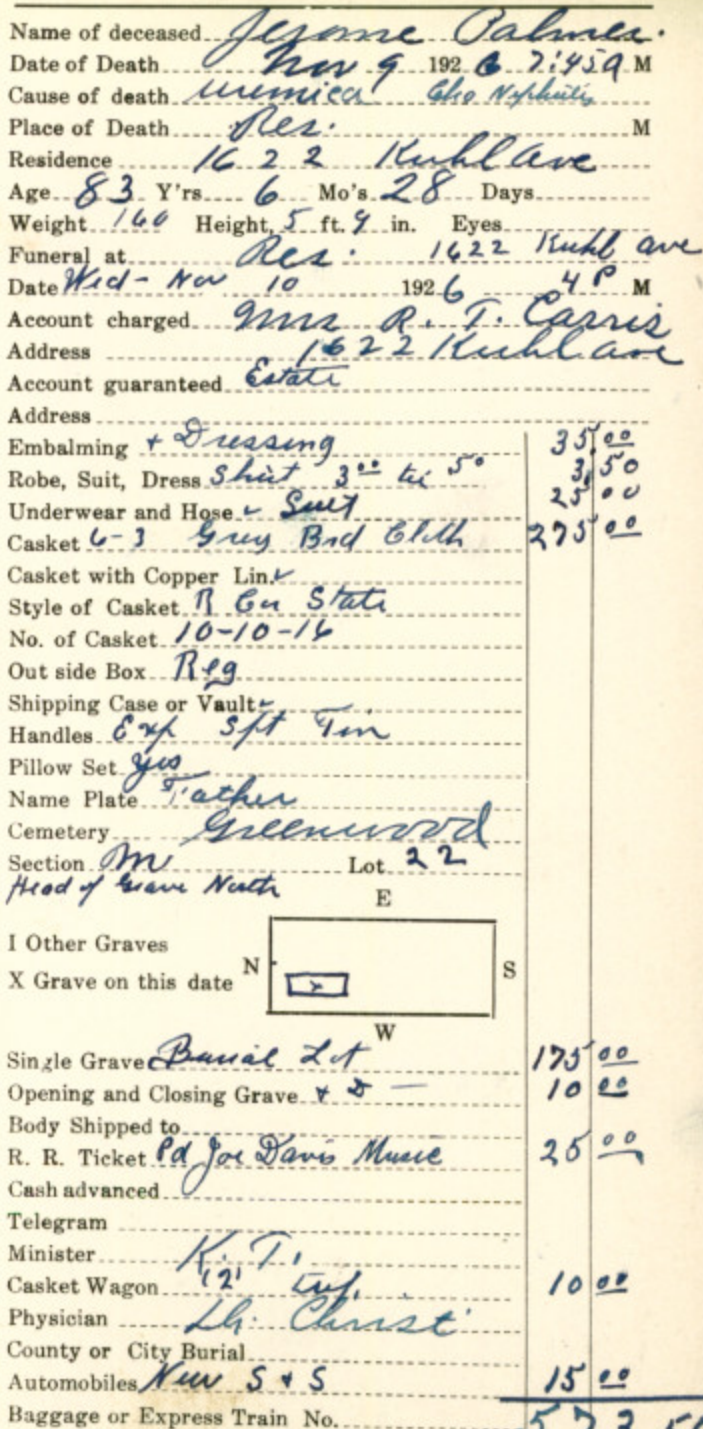 Name of deceased Jerome Palmer.
Date of Death Nov 9 1926 7:45 a M
Cause of death uremica Cho Nephritis
Place of Death Res. M
Residence 1622 Kuhl Ave
Age 83 Y'rs 6 Mo's 28 Days
Weight 160 Height, 5 ft. 9 in. Eyes
Funeral at Res. 1622 Kuhl ave
Date Wed- Nov 10 1926 4 P M
Account charged Mrs R. T. Carris
Address 1622 Kuhl ave
Account guaranteed Estate
Address
Embalming + Dressing 35.00
Robe, Suit, Dress Shirt 3.00 tie 50 3.50
Underwear and Hose Suit 25 00
Casket 6-3 Grey Brd Cloth 275 00
Casket with Copper Lin.
Style of Casket State
No. of Casket 10-10-16
Out side Box Reg
Shipping Case or Vault
Handles Exp Tin
Pillow Set yes
Name Plate Father
Cemetery Greenwood
Section M Lot 22
Head of Grave North
E
I Other Graves
X Grave on this date N x S
W
Single Grave Burial Lot 175 00
Opening and Closing Grave + D — 10 00
Body Shipped to
R. R. Ticket Pd Joe Davis Music 25 00
Cash advanced
Telegram
Minister K. T.
Casket Wagon (2) 10 00
Physician Dr. Christ
County or City Burial
Automobiles New S + S 15 00
Baggage or Express Train No. 573 50